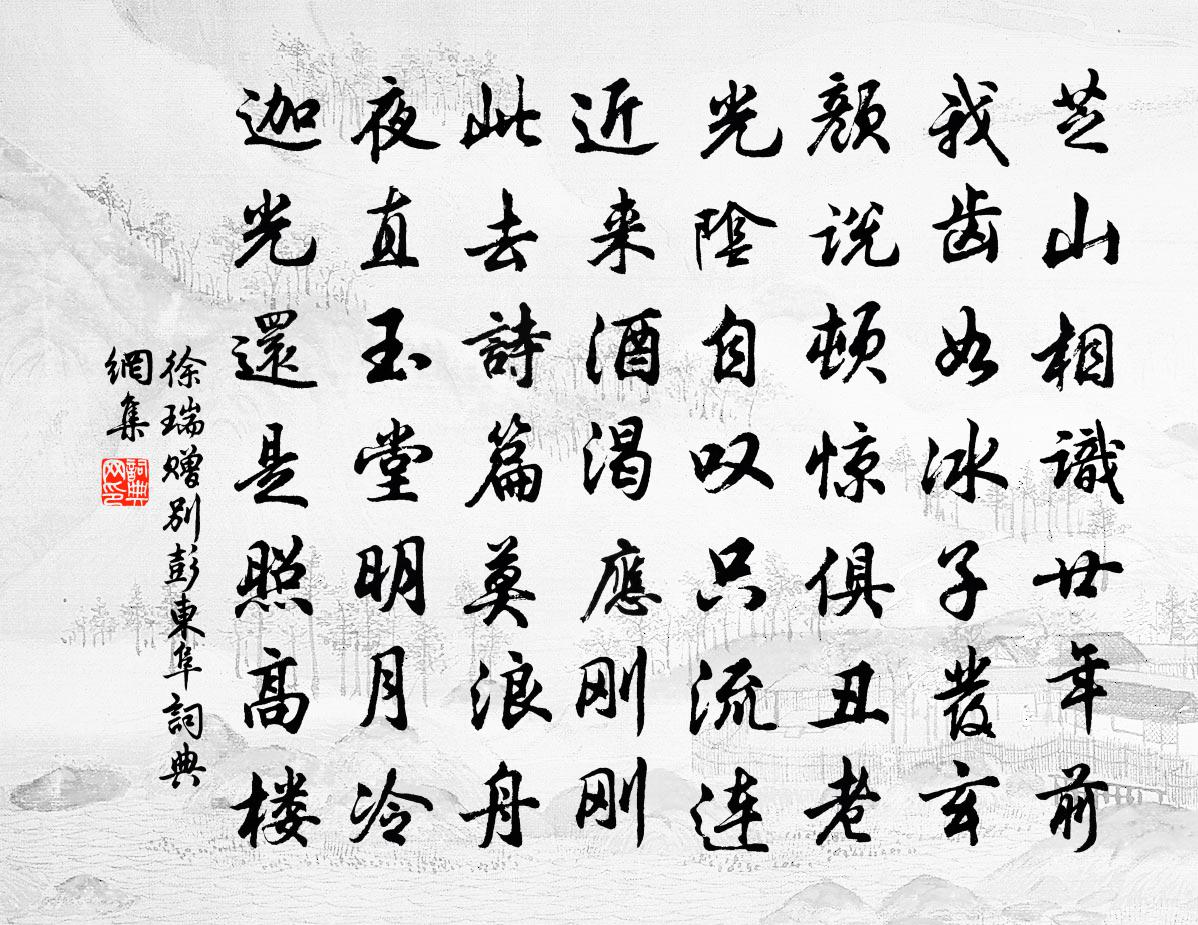 芝山相識廿年前
我齿如冰子发玄
颜说顿惊俱丑老
光陰自叹只流连
近来酒渴應刚刚
此去詩篇莫浪舟
夜直玉堂明月冷
迦光還是照高楼
徐瑞赠别彭東阜詞典
網集
詞典网印